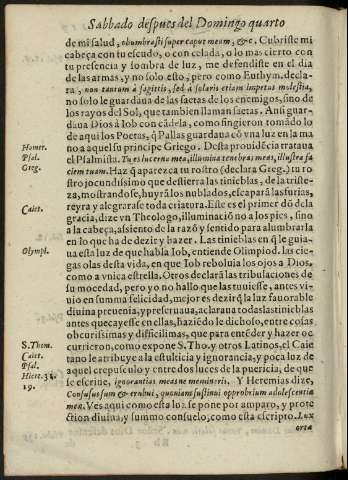 Sabbado despues del Domingo quarto
de mi salud, obumbrasti super caput meam, &c. Cubriste mi
cabeça con tu escudo, o con celada, o lo mas cierto con
tu presencia y sombra de luz, me defendiste en el dia
de las armas, y no solo esto, pero como Euthym. decla-
ra, non tantum à sagittis, sed à solaris etiam impetus molestia,
no solo le guardaua de las saetas de los enemigos, sino de
los rayos del Sol, que tambien llaman saetas. Ansi guar-
daua Dios à Iob con cãdela, como fingieron tomãdo lo
de aqui los Poetas, q̃ Pallas guardaua cõ vna luz en la ma
no a aquel su principe Griego. Desta prouidẽcia trataua
el Psalmista. Tu es lucerna mea, illumina tenebras meas, illustra fa
ciem tuam. Haz q̃ aparezca tu rostro (declara Greg.) tu ro
stro jocundissimo que destierra las tinieblas, de la triste-
za, mostrando se, huyrá los nublados, escaparà las furias,
reyra y alegrarase toda criatura. Este es el primer dõ de la
gracia, dize vn Theologo, illuminaciõ no a los pies, sino
a la cabeça, assiento de la razõ y sentido para alumbrarla
en lo que ha de dezir y hazer. Las tinieblas en q̃ le guia-
ua esta luz de que habla Iob, entiende Olimpiod. las cie-
gas olas desta vida, en que Iob reboluia los ojos a Dios,
como a vnica estrella. Otros declarã las tribulaciones de
su mocedad, pero yo no hallo que las tuuiesse, antes vi-
uio en summa felicidad, mejor es dezir q̃ la luz fauorable
diuina preuenia, y preseruaua, aclaraua todas las tinieblas
antes que cayesse en ellas, haziẽdo le dichoso, entre cosas
obscurissimas y dificilimas, que para entẽder y hazer oc
currieron, como expone S. Tho. y otros Latinos, el Caie
tano le atribuye a la estulticia y ignorancia, y poca luz de
aquel crepusculo y entre dos luces de la puericia, de que
se escriue, ignorantias meas ne memineris. Y Hieremias dize,
Confusus sum & erubui, quoniam sustinui opprobrium adolescentiæ
meæ. Ves aqui como esta luz se pone por amparo, y prote
ction diuina, y summo consuelo, como esta escripto. Lux
orta
Homer.
Psal.
Greg.
Caiet.
Olympi.
S. Thom.
Caiet.
Psal.
Hiere. 31.
19.